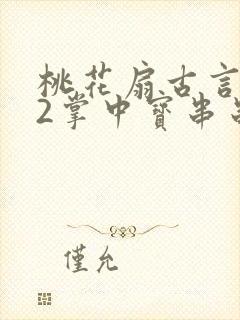 桃花扇古言
2掌中寶串
僅允